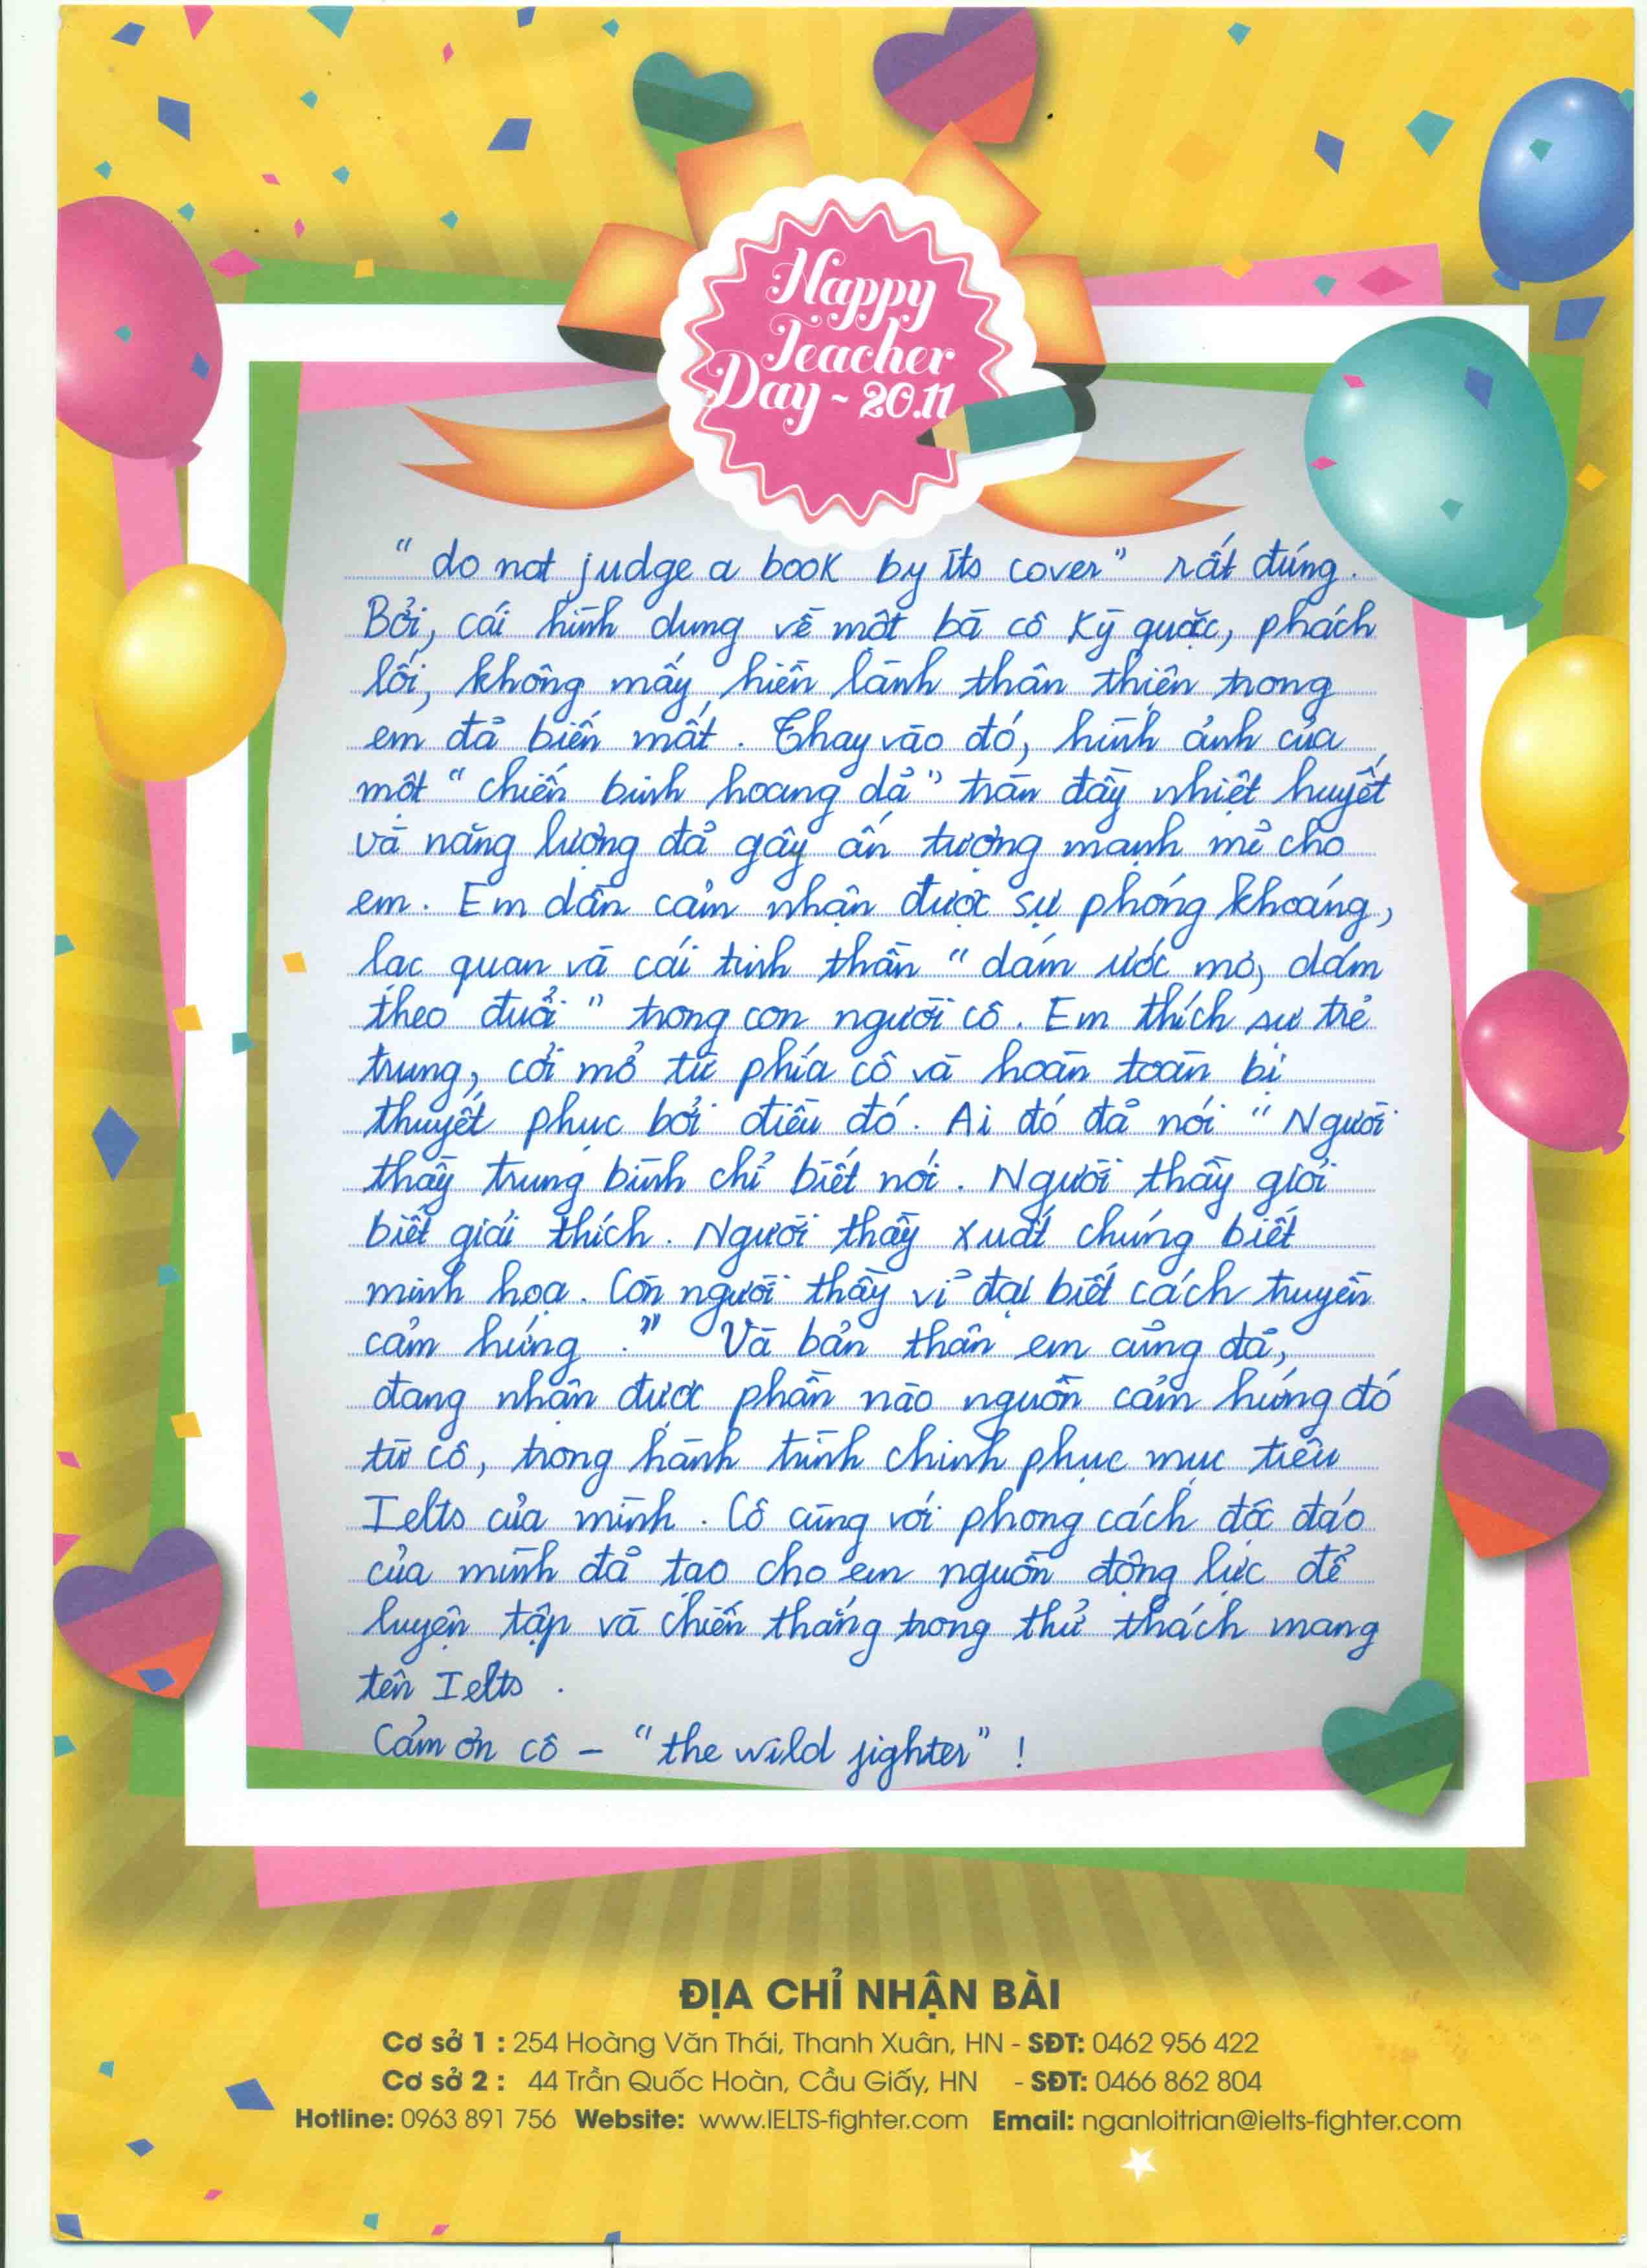 Happy
Teacher
Day ~ 20.11
" do not judge a book by its cover" rất đúng.
Bởi, cái hình dung về một bà cô kỳ quặc, phách
lối, không mấy hiền lành thân thiện trong
em đã biến mất. Thay vào đó, hình ảnh của
một " chiến binh hoang dã" tràn đầy nhiệt huyết
và năng lượng đã gây ấn tượng mạnh mẽ cho
em. Em dần cảm nhận được sự phóng khoáng,
lạc quan và cái tinh thần " dám ước mơ, dám
theo đuổi" trong con người cô. Em thích sự trẻ
trung, cởi mở từ phía cô và hoàn toàn bị
thuyết phục bởi điều đó. Ai đó đã nói " Người
thầy trung bình chỉ biết nói. Người thầy giỏi
biết giải thích. Người thầy xuất chúng biết
minh họa. Còn người thầy vĩ đại biết cách truyền
cảm hứng ." Và bản thân em cũng đã,
đang nhận được phần nào nguồn cảm hứng đó
từ cô, trong hành trình chinh phục mục tiêu
Ielts của mình. Cô cùng với phong cách độc đáo
của mình đã tạo cho em nguồn động lực để
luyện tập và chiến thắng trong thử thách mang
tên Ielts .
Cảm ơn cô – "the wild fighter" !
ĐỊA CHỈ NHẬN BÀI
Cơ sở 1 : 254 Hoàng Văn Thái, Thanh Xuân, HN - SĐT: 0462 956 422
Cơ sở 2 : 44 Trần Quốc Hoàn, Cầu Giấy, HN - SĐT: 0466 862 804
Hotline: 0963 891 756 Website: www.IELTS-fighter.com Email: nganloitrian@ielts-fighter.com